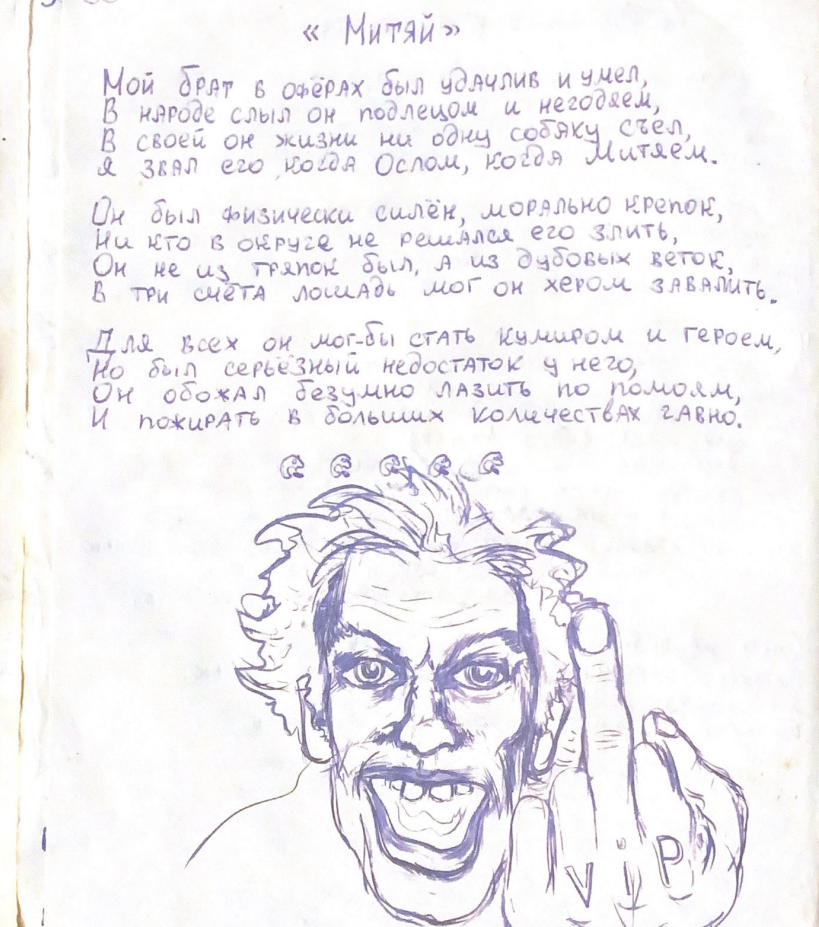 « Митяй »
Мой брат в офёрах был удачлив и умел,
В народе слыл он подлецом и негодяем,
В своей он жизни ни одну собаку съел,
Я звал его когда Ослом, когда Митяем.
Он был физически силён, морально крепок,
Ни кто в округе не решался его злить,
Он не из тряпок был, а из дубовых веток,
В три счёта лошадь мог он хером завалить.
Для всех он мог-бы стать кумиром и героем,
Но был серьёзный недостаток у него,
Он обожал безумно лазить по помоям,
И пожирать в больших количествах гавно.
ViP